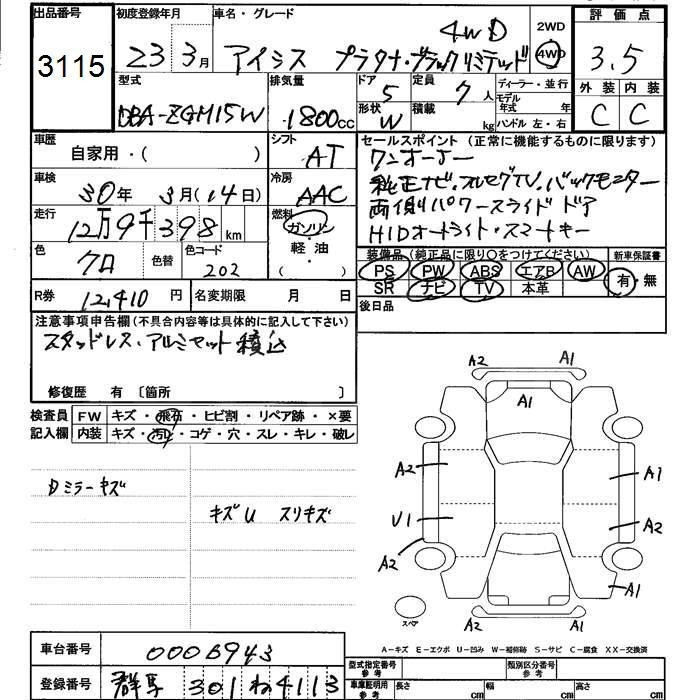 出品番号 初度登録年月 車名・グレード 評価点
3115 23 3月 アイシス プラタナ・ブラックリミテッド 4WD 2WD 4WD 3.5
型式 排気量 ドア 5 定員 7人 ディーラー・並行 外装 内装
DBA-ZGM15W 1800cc 形状 W 積載 kg モデル年式 年 ハンドル 左・右 C C
車歴 シフト セールスポイント (正常に機能するものに限ります)
自家用・( ) AT ワンオーナー
車検 冷房 純正ナビ.フルセグTV.バックモニター
30年 3月(14日) AAC 両側パワースライドドア
走行 燃料 HIDオートライト・スマートキー
12万9千398km ガソリン・軽油・( )
色 色替 色コード 装備品(純正品に限り○をつけてください) 新車保証書
クロ 202 PS PW ABS エアB AW 有・無
SR ナビ TV 本革
R券 12,410円 名変期限 月 日 後日品
注意事項申告欄(不具合内容等は具体的に記入して下さい)
スタッドレス・アルミセット積込
修復歴 有 〔箇所 〕
検査員 FW キズ・飛石・ヒビ割・リペア跡・×要
記入欄 内装 キズ・汚レ・コゲ・穴・スレ・キレ・破レ
A2 A1
A1
A2 A1
Dミラーキズ
キズU スリキズ
U1 A2
A2 A1
スペア A2 A1
A-キズ E-エクボ U-凹み W-補修跡 S-サビ C-腐食 XX-交換済
車台番号 0006943 型式指定番号 参考 類別区分番号 参考
登録番号 群馬 301 ね 4113 車庫証明用 参考 長さ cm 幅 cm 高さ cm